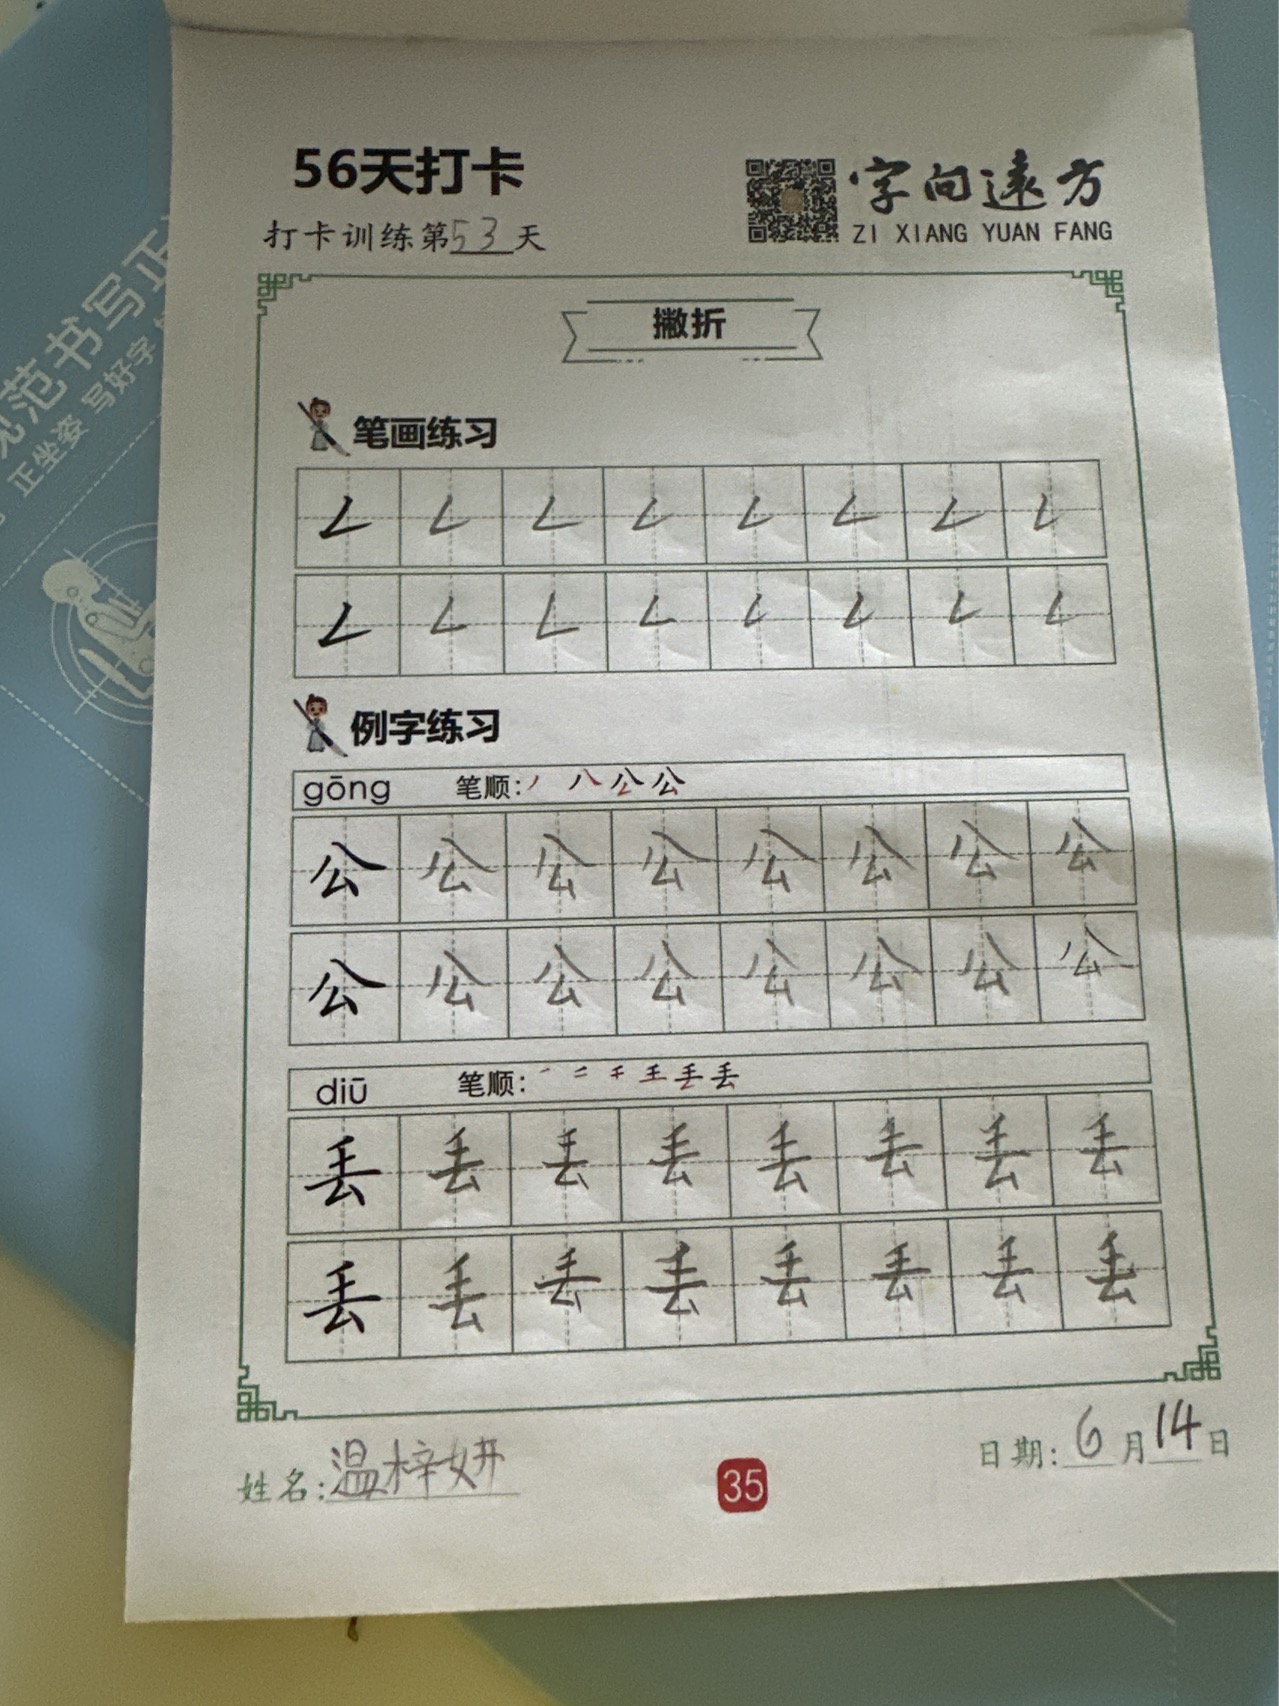 56天打卡
打卡训练第53天
字向遠方
ZI XIANG YUAN FANG
规范书写正
正坐姿 写好字
撇折
笔画练习
𠃋 𠃋 𠃋 𠃋 𠃋 𠃋 𠃋 𠃋
𠃋 𠃋 𠃋 𠃋 𠃋 𠃋 𠃋 𠃋
例字练习
gōng 笔顺: 丿 八 公 公
公 公 公 公 公 公 公 公
公 公 公 公 公 公 公 公
diū 笔顺: 一 二 千 王 丢 丢
丢 丢 丢 丢 丢 丢 丢 丢
丢 丢 丢 丢 丢 丢 丢 丢
姓名:温梓妍
35
日期:6月14日